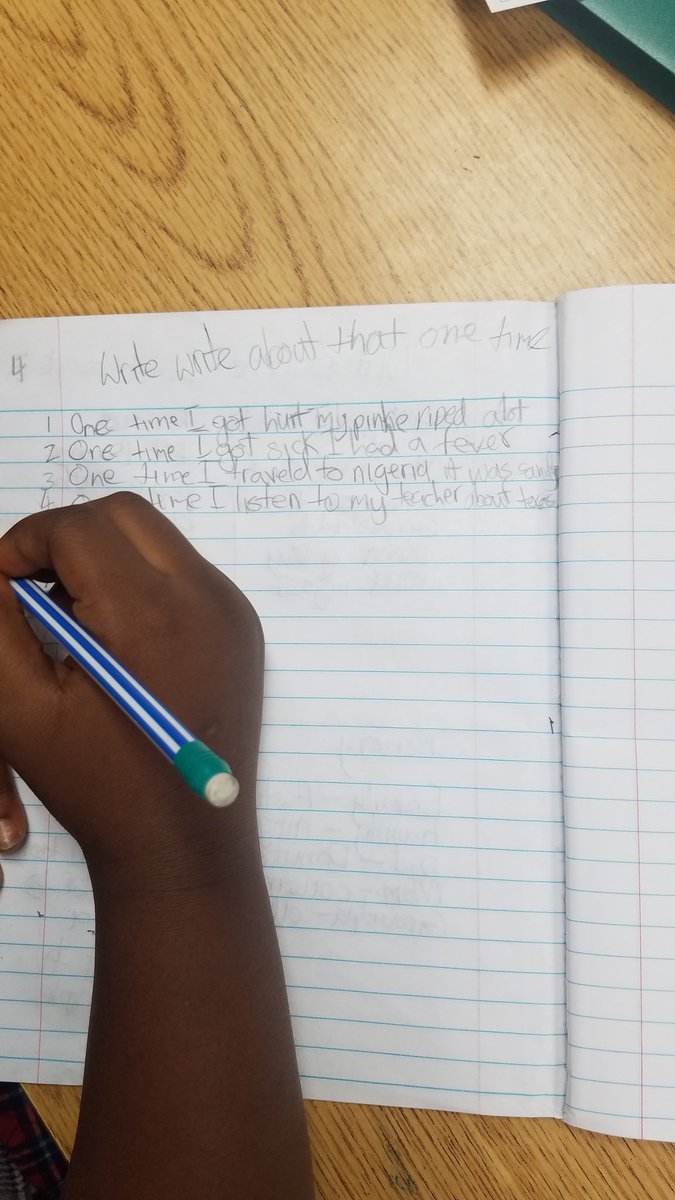 4 Write write about that one time
1 One time I got hurt my pinkie riped alot
2 One time I got sick I had a fever
3 One time I traveld to nigeria, it was
4 time I listen to my teacher about